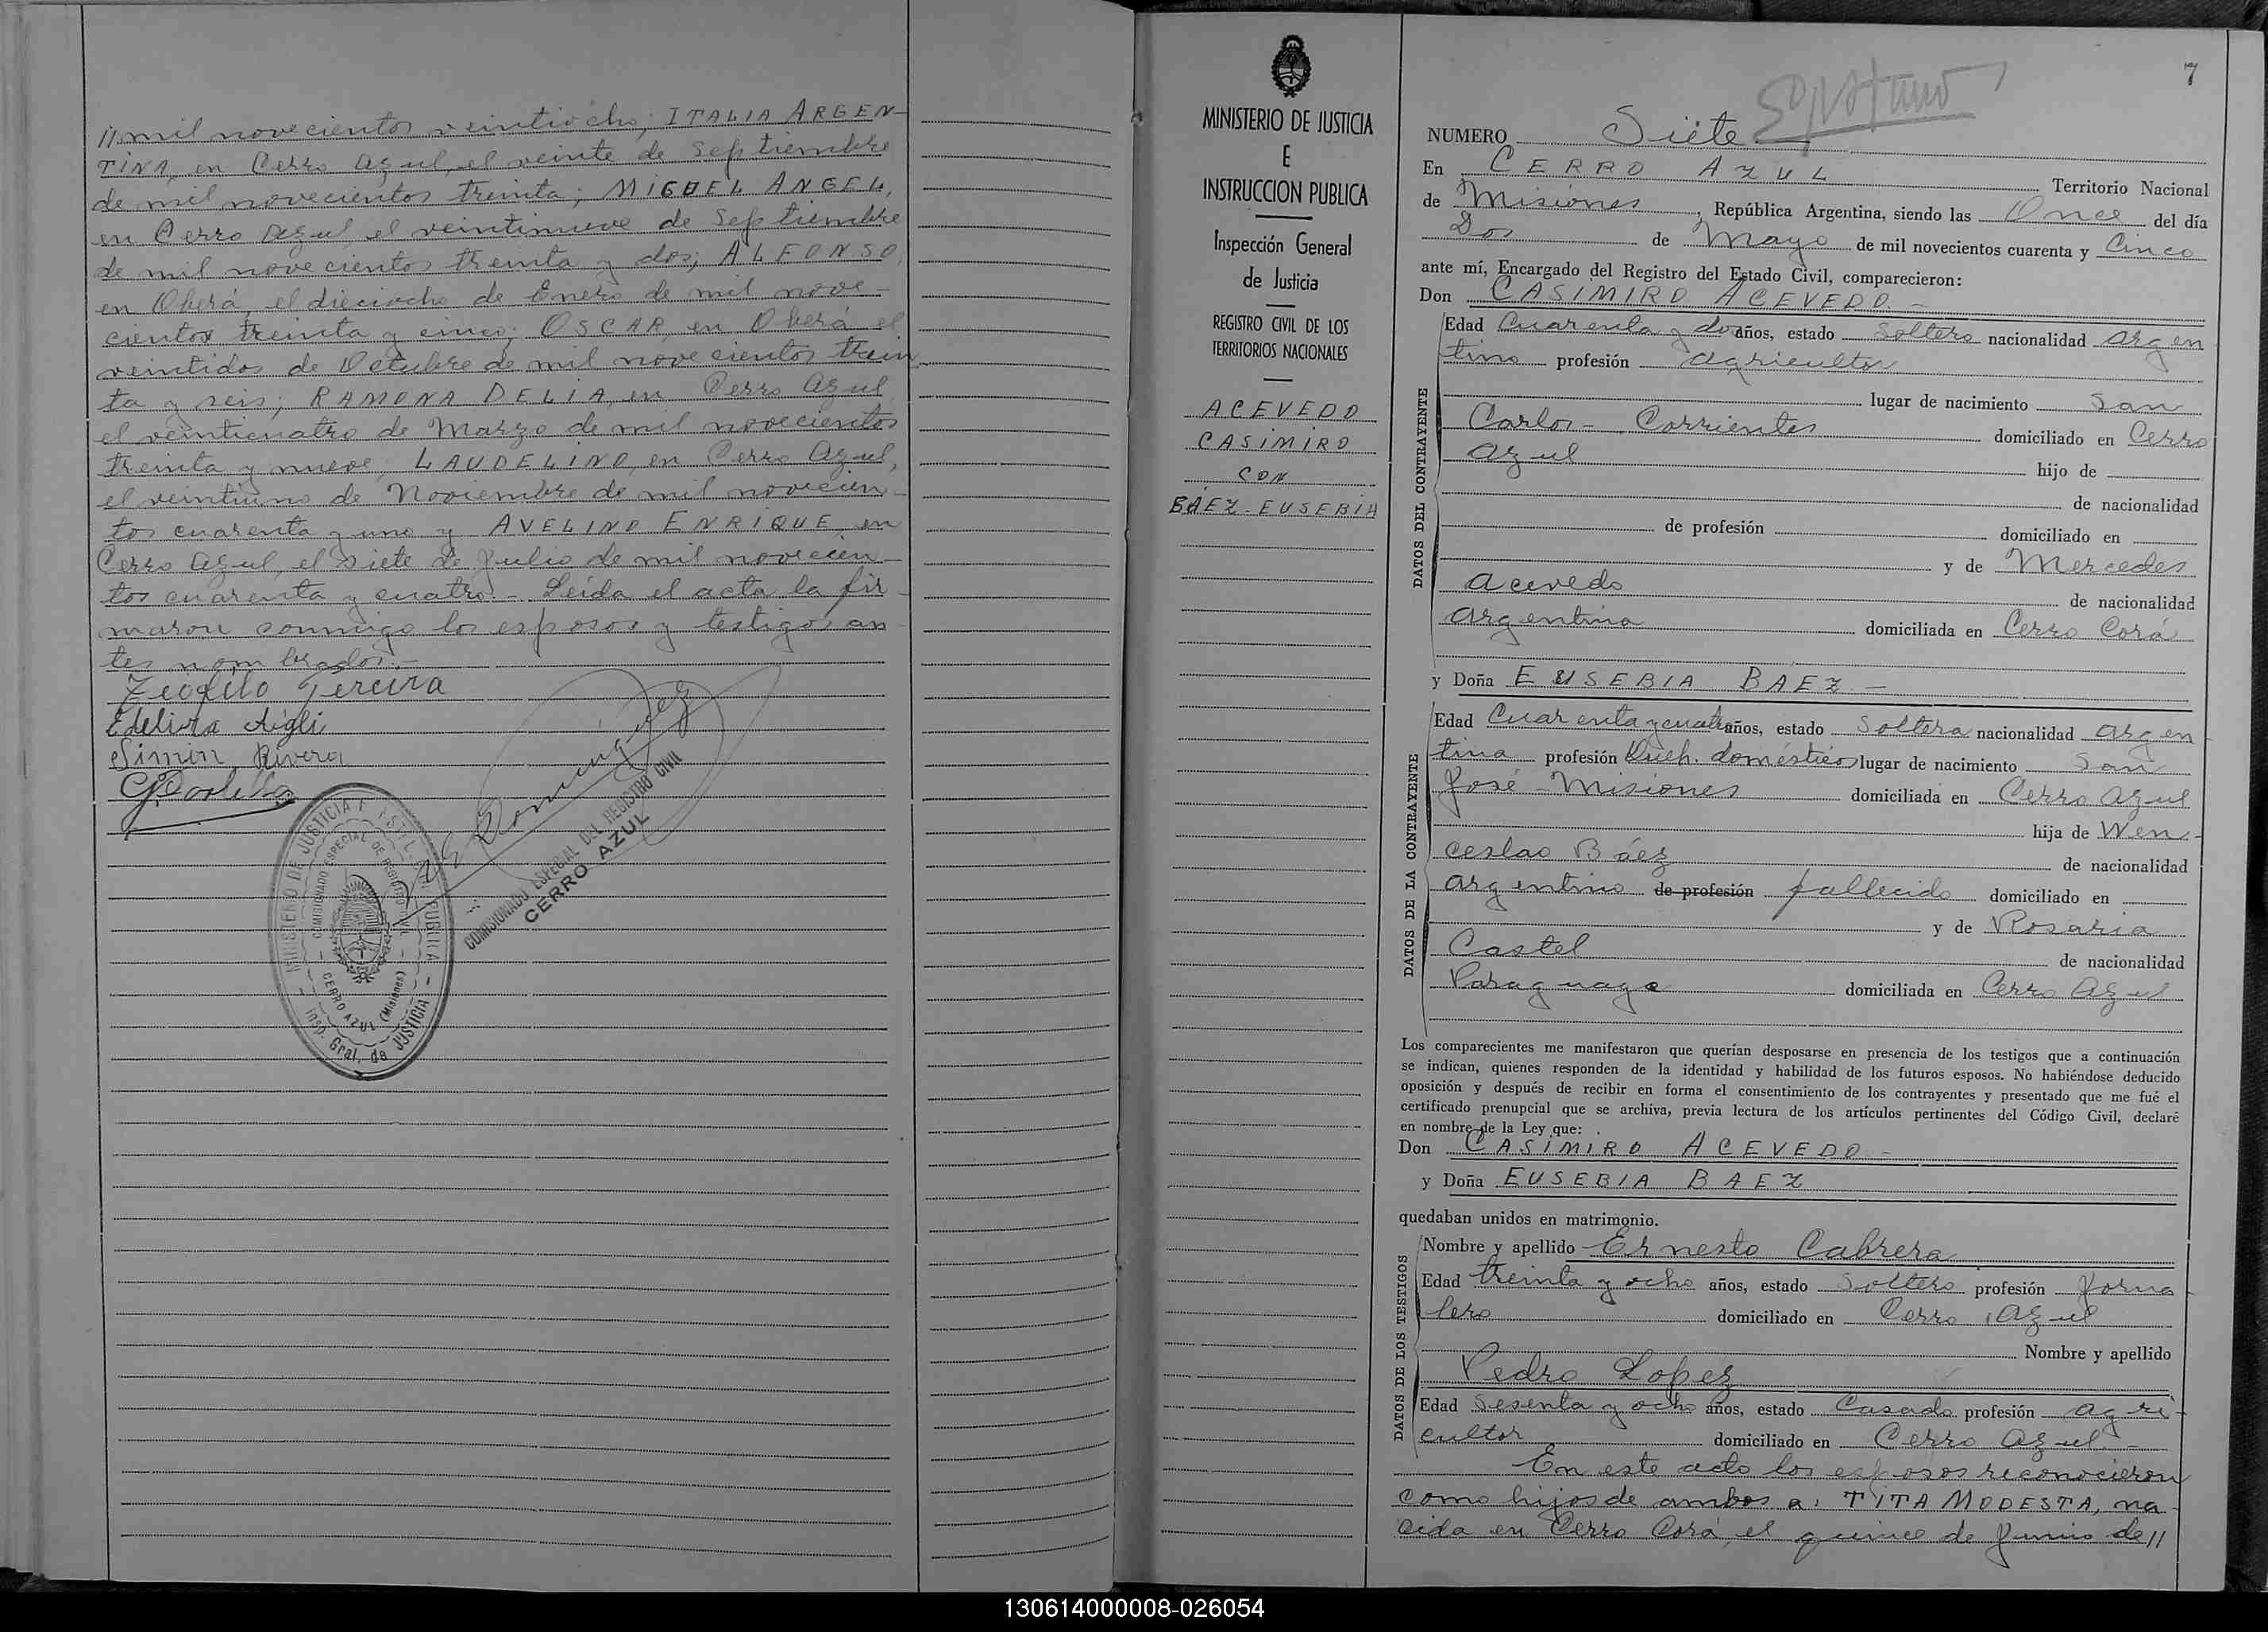 //mil novecientos veintiocho; ITALIA ARGEN-
TINA, en Cerro Azul, el veinte de Septiembre
de mil novecientos treinta; MIGUEL ANGEL,
en Cerro Azul, el veintinueve de Septiembre
de mil novecientos treinta y dos; ALFONSO,
en Oberá, el dieciocho de Enero de mil nove-
cientos treinta y cinco; OSCAR, en Oberá el
veintidos de Octubre de mil novecientos trein
ta y seis; RAMONA DELIA, en Cerro Azul
el veinticuatro de Marzo de mil novecientos
treinta y nueve, LAUDELINO, en Cerro Azul,
el veintiuno de Noviembre de mil novecien-
tos cuarenta y uno y AVELINO ENRIQUE, en
Cerro Azul, el siete de Julio de mil novecien-
tos cuarenta y cuatro.- Leída el acta la fir-
maron conmigo los esposos y testigos an
tes nombrados.-
Teofilo Pereira
Edelira
Simon Rivera
Dominguez
COMISIONADO ESPECIAL DEL REGISTRO CIVIL
CERRO AZUL
MINISTERIO DE JUSTICIA E INST. PUBLICA
COMISIONADO ESPECIAL DE REGISTRO CIVIL
CERRO AZUL (Misiones)
Insp. Gral. de JUSTICIA
MINISTERIO DE JUSTICIA
E
INSTRUCCION PUBLICA
Inspección General
de Justicia
REGISTRO CIVIL DE LOS
TERRITORIOS NACIONALES
ACEVEDO
CASIMIRO
CON
BAEZ-EUSEBIA
7
NUMERO Siete
En CERRO AZUL Territorio Nacional
de Misiones, República Argentina, siendo las Once del día
Dos de Mayo de mil novecientos cuarenta y Cinco
ante mí, Encargado del Registro del Estado Civil, comparecieron:
Don CASIMIRO ACEVEDO.-
DATOS DEL CONTRAYENTE
Edad Cuarenta y dos años, estado Soltero nacionalidad Argen
tino profesión agricultor
lugar de nacimiento San
Carlos - Corrientes domiciliado en Cerro
Azul hijo de
de nacionalidad
de profesión domiciliado en
y de Mercedes
Acevedo de nacionalidad
Argentina domiciliada en Cerro Corá
y Doña EUSEBIA BAEZ.-
DATOS DE LA CONTRAYENTE
Edad Cuarenta y cuatro años, estado Soltera nacionalidad Argen
tina profesión Queh. domésticos lugar de nacimiento San
José - Misiones domiciliada en Cerro Azul
hija de Wen-
ceslao Báez de nacionalidad
Argentino de profesión fallecido domiciliado en
y de Rosaria
Castel de nacionalidad
Paraguaya domiciliada en Cerro Azul
Los comparecientes me manifestaron que querían desposarse en presencia de los testigos que a continuación
se indican, quienes responden de la identidad y habilidad de los futuros esposos. No habiéndose deducido
oposición y después de recibir en forma el consentimiento de los contrayentes y presentado que me fué el
certificado prenupcial que se archiva, previa lectura de los artículos pertinentes del Código Civil, declaré
en nombre de la Ley que:
Don CASIMIRO ACEVEDO -
y Doña EUSEBIA BAEZ
quedaban unidos en matrimonio.
DATOS DE LOS TESTIGOS
Nombre y apellido Ernesto Cabrera
Edad treinta y ocho años, estado Soltero profesión Jorna
lero domiciliado en Cerro Azul
Nombre y apellido
Pedro Lopez
Edad Sesenta y ocho años, estado Casado profesión agri-
cultor domiciliado en Cerro Azul -
En este acto los esposos reconocieron
como hijos de ambos a: TITA MODESTA, na-
cida en Cerro Corá, el quince de Junio de//
130614000008-026054